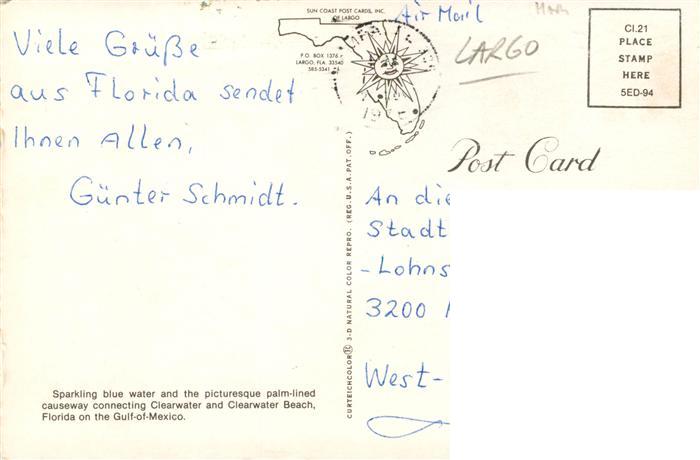 SUN COAST POST CARDS, INC.
OF LARGO
P. O. BOX 1376
LARGO, FLA. 33540
585-5341
Air Mail
LARGO
CI.21
PLACE
STAMP
HERE
5ED-94
Post Card
Viele Grüße
aus Florida sendet
Ihnen Allen,
Günter Schmidt.
Sparkling blue water and the picturesque palm-lined
causeway connecting Clearwater and Clearwater Beach,
Florida on the Gulf-of-Mexico.
CURTEICHCOLOR 3-D NATURAL COLOR REPRO. (REG. U.S.A. PAT. OFF.)
An die
Stadt
-Lohns
3200
West-